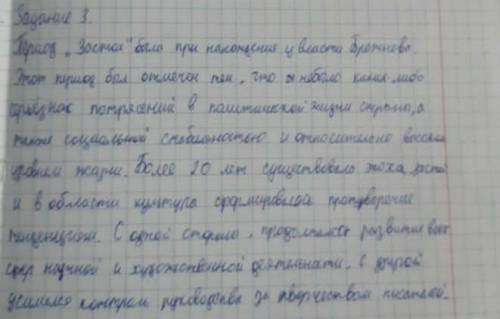 Задание 3.
Период "Застоя" было при нахождение у власти Брежнева.
Этот период был отмечен тем, что не было каких-либо
серьёзных потрясений в политической жизни страны, а
также социальной стабильностью и относительно высоким
уровнем жизни. Более 20 лет существовала эпоха застоя
и в области культуры сформировалась противоречивые
тенденции. С одной стороны, продолжалось развитие всех
сфер научной и художественной деятельности, с другой
усилился контроль руководства за творчеством писателей.